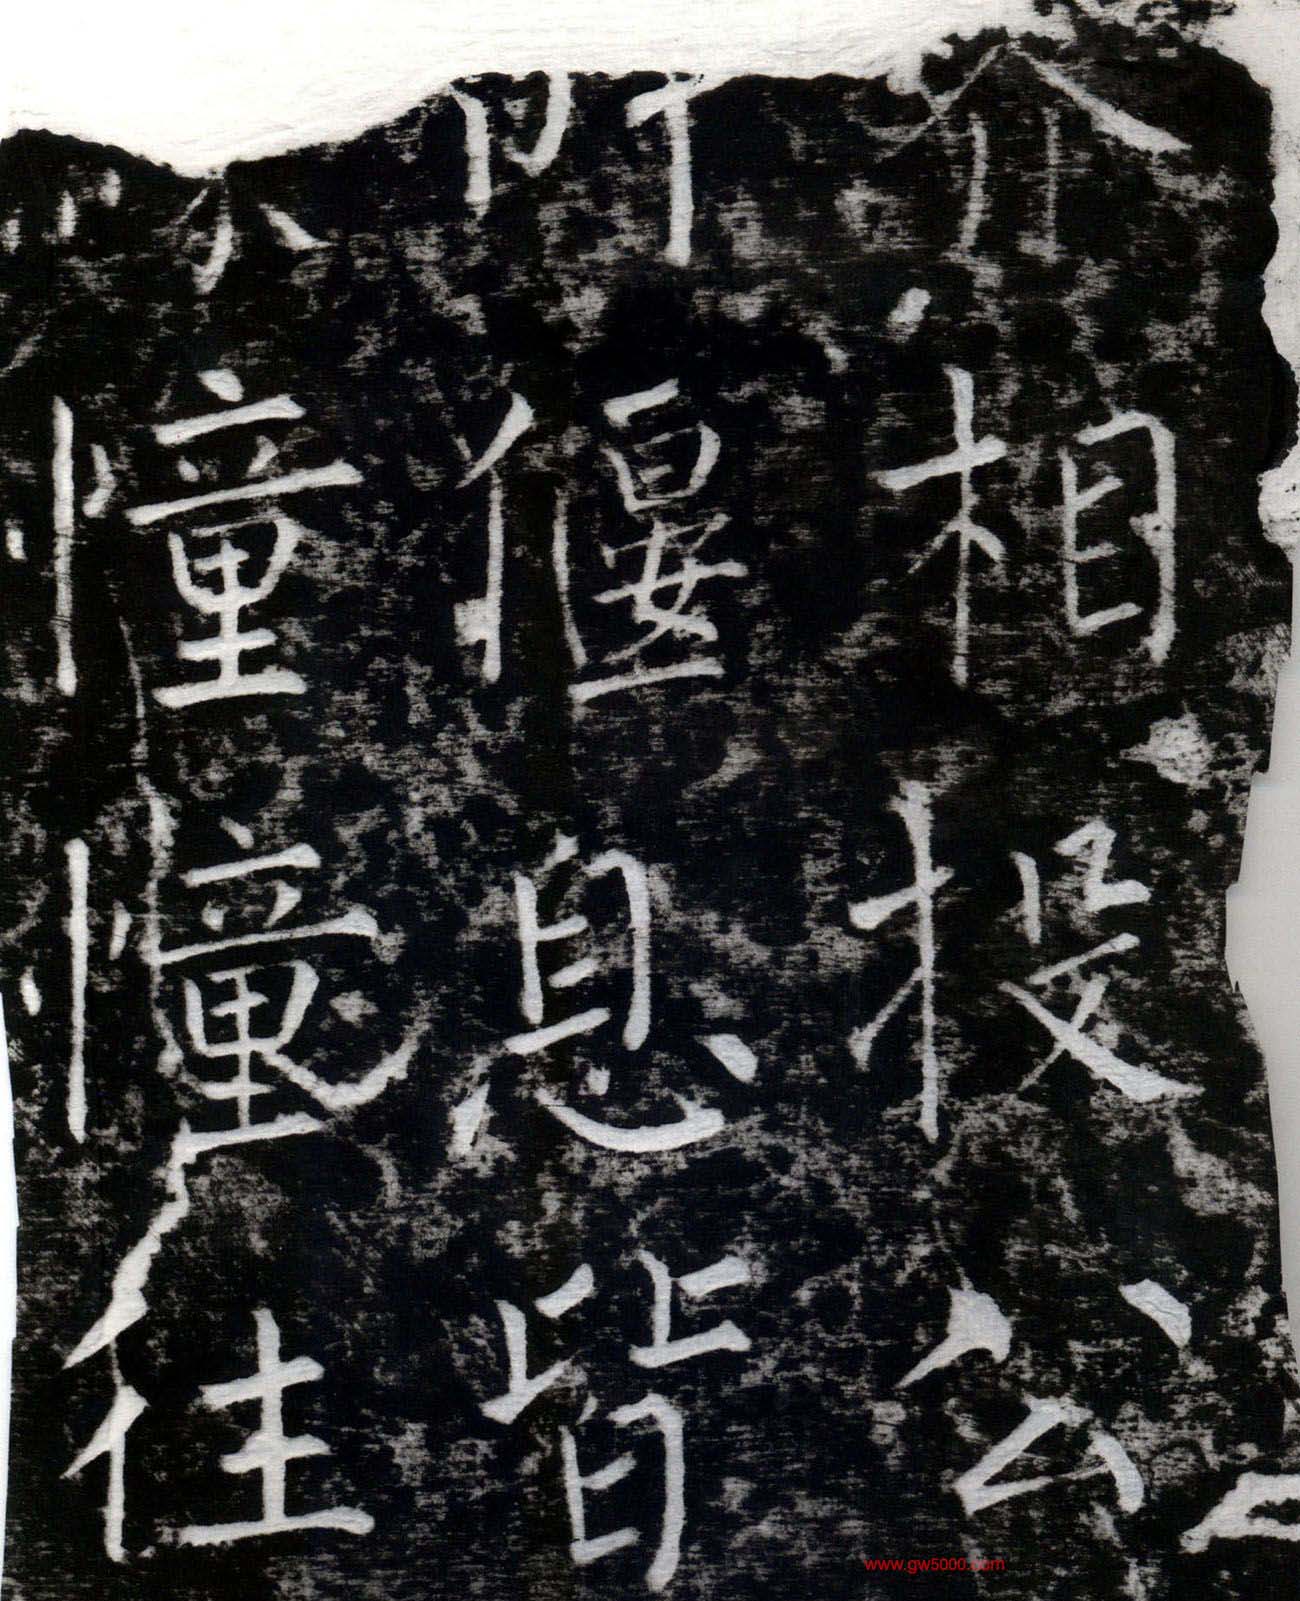 相投公
所偃息皆
憧憧往
www.gw5000.com